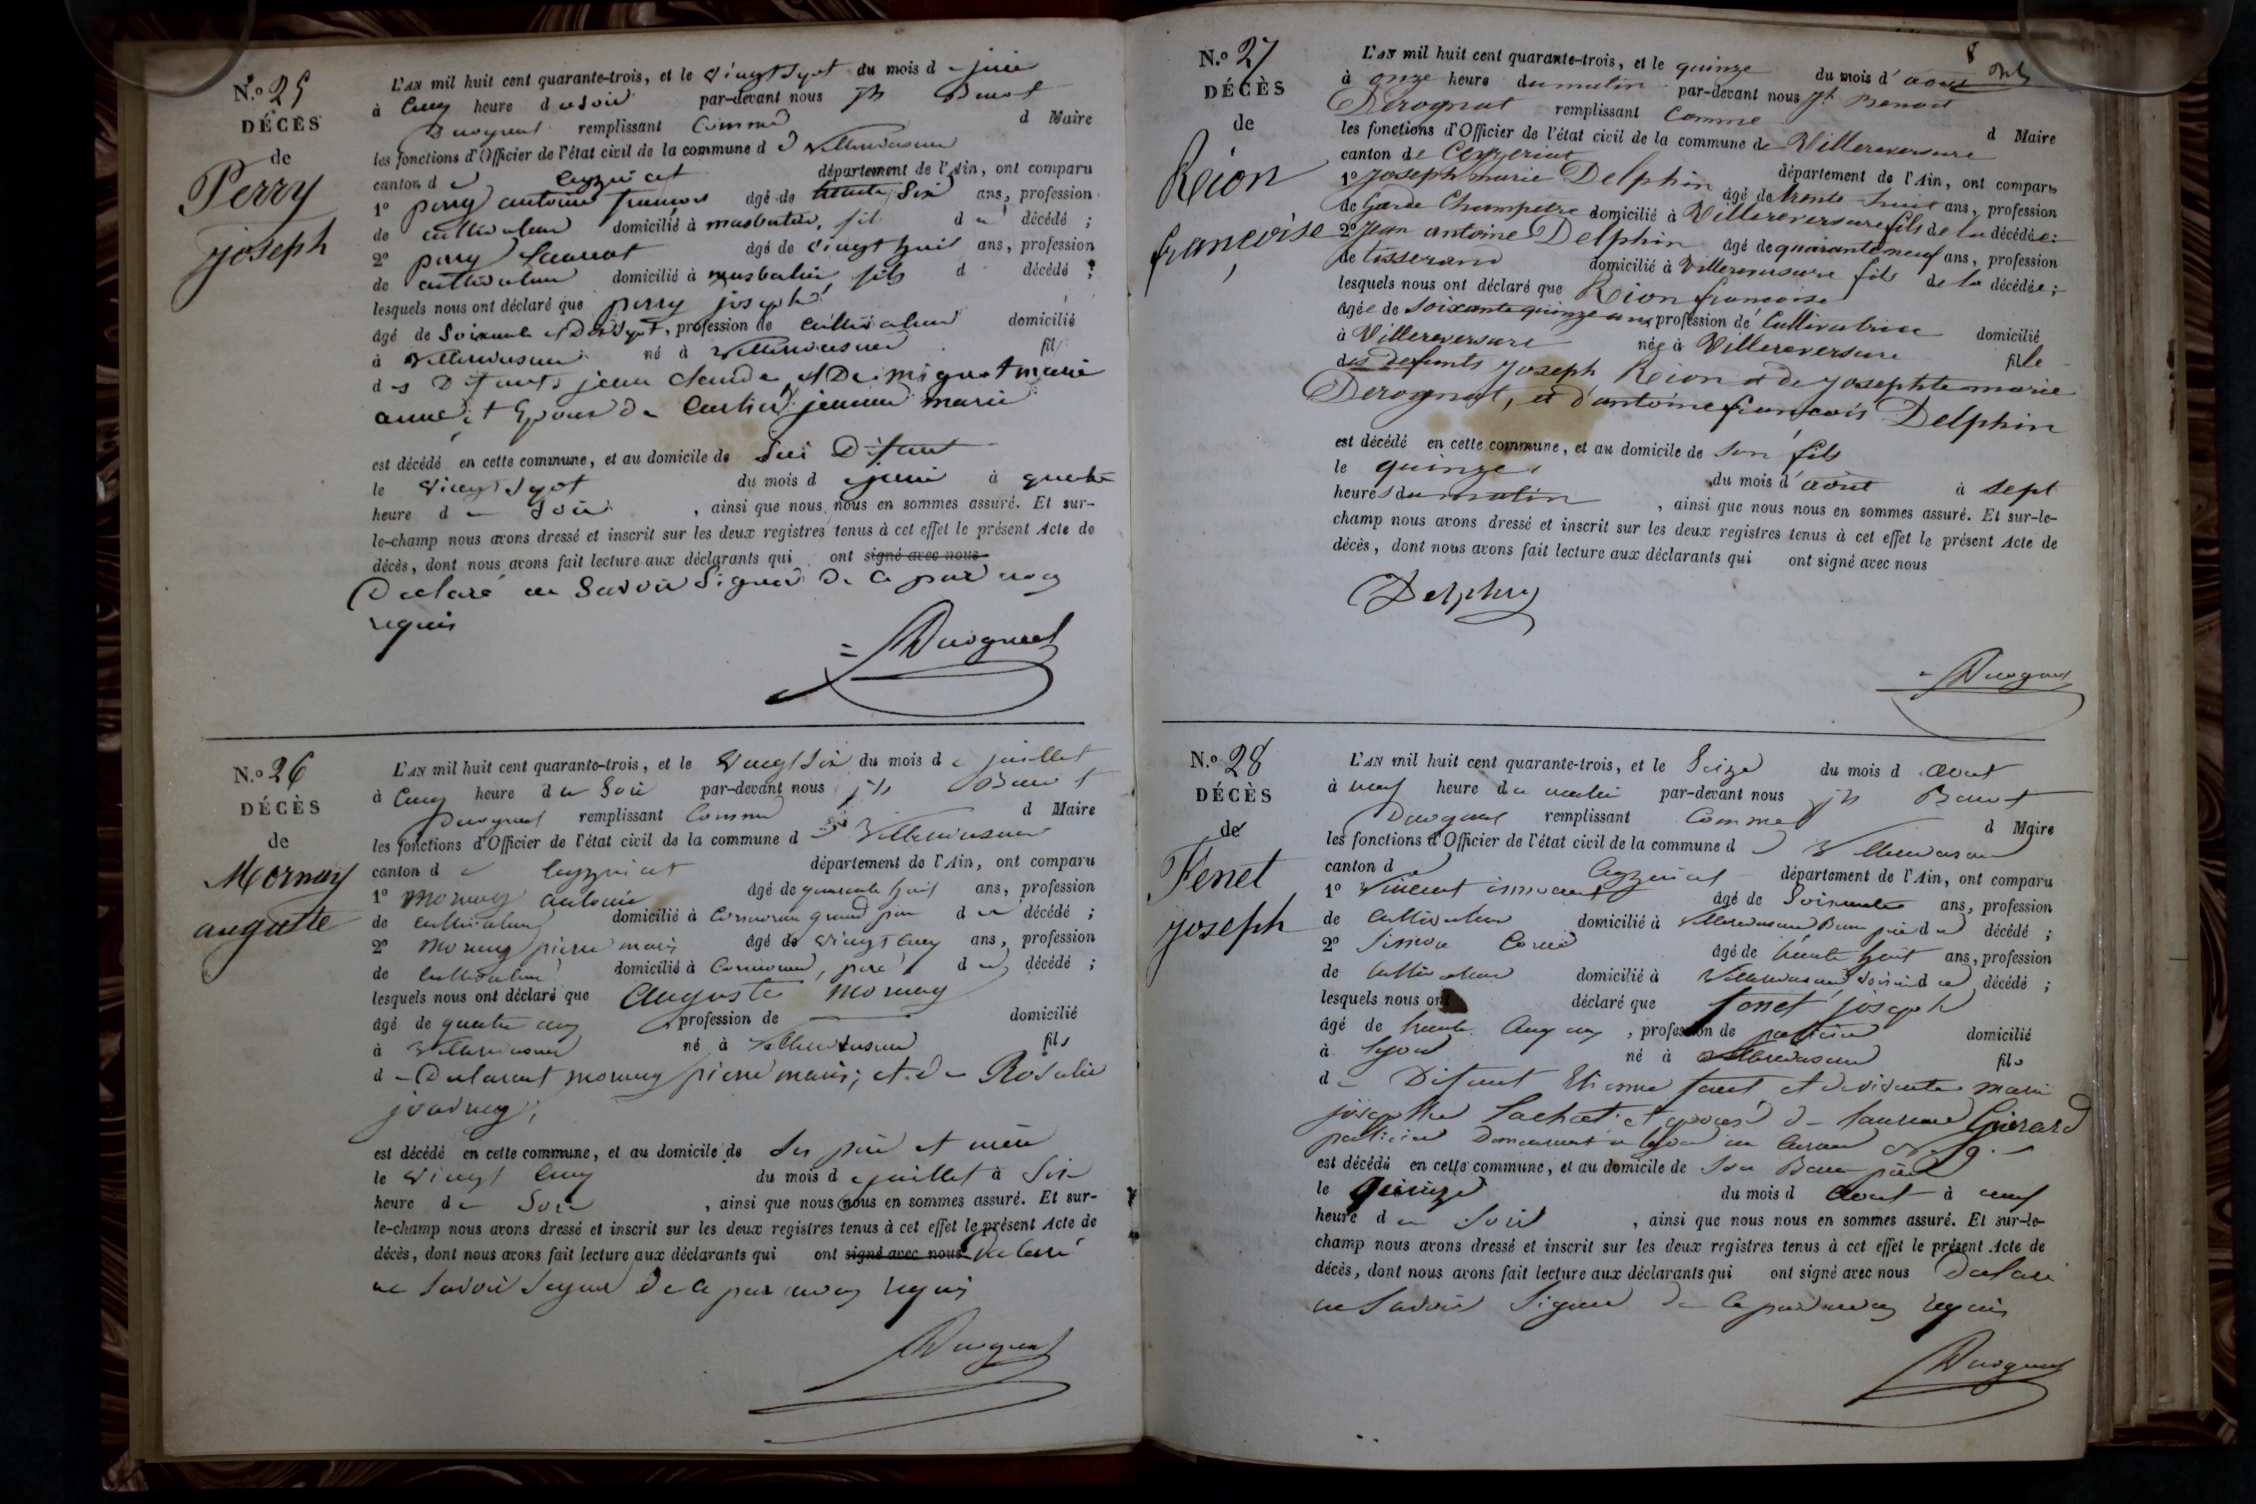 N.o 25
DÉCÈS
de
Perry
joseph
L'AN mil huit cent quarante-trois, et le vingt sept du mois de juin
à cinq heure du soir par-devant nous jh Benoit
Derognat remplissant comme d Maire
les fonctions d'Officier de l'état civil de la commune d Villereversure
canton de Ceyzeriat département de l'Ain, ont comparu
1o perry antoine françois âgé de trente six ans, profession
de cultivateur domicilié à masbatier, fils du décédé ;
2o perry Laurent âgé de vingt huit ans, profession
de cultivateur domicilié à masbatier, fils d décédé ;
lesquels nous ont déclaré que perry joseph
âgé de soixante et dix sept, profession de cultivateur domicilié
à Villereversure né à Villereversure fils
des Défunts jean claude et De miguet marie
anne, et Epoux de jeanne marie
est décédé en cette commune, et au domicile de lui Défunt
le vingt sept du mois de juin à quatre
heure du soir, ainsi que nous nous en sommes assuré. Et sur-
le-champ nous avons dressé et inscrit sur les deux registres tenus à cet effet le présent Acte de
décès, dont nous avons fait lecture aux déclarants qui ont signé avec nous
Déclaré ne savoir signer De ce par nous
requis
Derognat
N.o 26
DÉCÈS
de
Mornay
auguste
L'AN mil huit cent quarante-trois, et le vingt six du mois de juillet
à cinq heure du soir par-devant nous jh Benoit
Derognat remplissant comme d Maire
les fonctions d'Officier de l'état civil de la commune d Villereversure
canton de Ceyzeriat département de l'Ain, ont comparu
1o mornay antoine âgé de quarante huit ans, profession
de cultivateur domicilié à grand père du décédé ;
2o mornay pierre marie âgé de vingt cinq ans, profession
de cultivateur domicilié à père du décédé ;
lesquels nous ont déclaré que auguste mornay
âgé de quatre ans profession de domicilié
à Villereversure né à Villereversure fils
de Déclarant mornay pierre marie, et de Rosalie
est décédé en cette commune, et au domicile de ses père et mère
le vingt cinq du mois de juillet à six
heure du soir, ainsi que nous nous en sommes assuré. Et sur-
le-champ nous avons dressé et inscrit sur les deux registres tenus à cet effet le présent Acte de
décès, dont nous avons fait lecture aux déclarants qui ont signé avec nous Déclaré
ne savoir signer De ce par nous requis
Derognat
8
N.o 27
DÉCÈS
de
Réion
françoise
L'AN mil huit cent quarante-trois, et le quinze du mois d'août
à onze heure du matin par-devant nous jh Benoit
Derognat remplissant comme d Maire
les fonctions d'Officier de l'état civil de la commune de Villereversure
canton de Ceyzeriat département de l'Ain, ont comparu
1o Joseph marie Delphin âgé de trente huit ans, profession
de Garde Champetre domicilié à Villereversure fils de la décédée ;
2o Jean antoine Delphin âgé de quarante neuf ans, profession
de tisserand domicilié à Villereversure fils de la décédée ;
lesquels nous ont déclaré que Réion françoise
âgée de soixante quinze ans, profession de Cultivatrice domicilié
à Villereversure née à Villereversure fille
des defunts joseph Réion et de josephte marie
Derognat, et d'antoine françois Delphin
est décédé en cette commune, et au domicile de son fils
le quinze du mois d'août à sept
heures du matin, ainsi que nous nous en sommes assuré. Et sur-le-
champ nous avons dressé et inscrit sur les deux registres tenus à cet effet le présent Acte de
décès, dont nous avons fait lecture aux déclarants qui ont signé avec nous
Delphin
Derognat
N.o 28
DÉCÈS
de
Fenet
joseph
L'AN mil huit cent quarante-trois, et le seize du mois d aout
à neuf heure du matin par-devant nous jh Benoit
Derognat remplissant comme d Maire
les fonctions d'Officier de l'état civil de la commune d Villereversure
canton d Ceyzeriat département de l'Ain, ont comparu
1o Vincent innocent âgé de soixante ans, profession
de cultivateur domicilié à Villereversure Beau père du décédé ;
2o Simon âgé de trente huit ans, profession
de cultivateur domicilié à Villereversure voisin du décédé ;
lesquels nous ont déclaré que fenet joseph
âgé de trente cinq ans, profession de domicilié
à Lyon né à Villereversure fils
de Défunt Etienne fenet et de vivante marie
josephte Lachat et epoux de Laurence Guérard
demeurant à Lyon
est décédé en cette commune, et au domicile de son Beau père
le quinze du mois d aout à neuf
heure du soir, ainsi que nous nous en sommes assuré. Et sur-le-
champ nous avons dressé et inscrit sur les deux registres tenus à cet effet le présent Acte de
décès, dont nous avons fait lecture aux déclarants qui ont signé avec nous Déclaré
ne savoir signer de ce par nous requis
Derognat